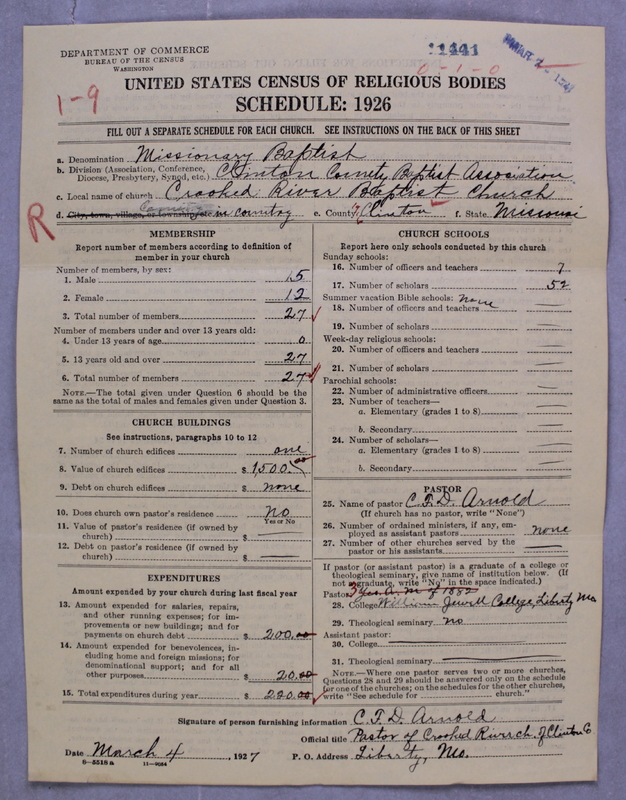 DEPARTMENT OF COMMERCE
BUREAU OF THE CENSUS
WASHINGTON
11441
0-1-0
1-9
UNITED STATES CENSUS OF RELIGIOUS BODIES
SCHEDULE: 1926
FILL OUT A SEPARATE SCHEDULE FOR EACH CHURCH. SEE INSTRUCTIONS ON THE BACK OF THIS SHEET
a. Denomination Missionary Baptist
b. Division (Association, Conference, Diocese, Presbytery, Synod, etc.) Clinton County Baptist Association
c. Local name of church Crooked River Baptist Church
R
d. City, town, village, or township, etc. in country e. County Clinton f. State Missouri
MEMBERSHIP
Report number of members according to definition of
member in your church
Number of members, by sex:
1. Male 15
2. Female 12
3. Total number of members 27
Number of members under and over 13 years old:
4. Under 13 years of age 0
5. 13 years old and over 27
6. Total number of members 27
NOTE.—The total given under Question 6 should be
the same as the total of males and females given under Question 3.
CHURCH BUILDINGS
See instructions, paragraphs 10 to 12
7. Number of church edifices one
8. Value of church edifices $ 1,500.00
9. Debt on church edifices $ none
10. Does church own pastor's residence? No
Yes or No
11. Value of pastor's residence (if owned by
church) $
12. Debt on pastor's residence (if owned by
church) $
EXPENDITURES
Amount expended by your church during last fiscal year
13. Amount expended for salaries, repairs,
and other running expenses; for im-
provements or new buildings; and for
payments on church debt $ 200.00
14. Amount expended for benevolences, in-
cluding home and foreign missions; for
denominational support; and for all
other purposes $ 20.00
15. Total expenditures during year $ 220.00
CHURCH SCHOOLS
Report here only schools conducted by this church
Sunday schools:
16. Number of officers and teachers 7
17. Number of scholars 52
Summer vacation Bible schools: none
18. Number of officers and teachers
19. Number of scholars
Week-day religious schools:
20. Number of officers and teachers
21. Number of scholars
Parochial schools:
22. Number of administrative officers
23. Number of teachers—
a. Elementary (grades 1 to 8)
b. Secondary
24. Number of scholars—
a. Elementary (grades 1 to 8)
b. Secondary
PASTOR
25. Name of pastor C. F. D. Arnold
(If church has no pastor, write "None")
26. Number of ordained ministers, if any, em-
ployed as assistant pastors none
27. Number of other churches served by the
pastor or his assistants
If pastor (or assistant pastor) is a graduate of a college or
theological seminary, give name of institution below. (If
not a graduate, write "No" in the space indicated.)
Pastor: Yes. A. M. of 1882
28. College William Jewell College, Liberty Mo
29. Theological seminary no
Assistant pastor:
30. College
31. Theological seminary
NOTE.—Where one pastor serves two or more churches,
Questions 28 and 29 should be answered only on the schedule
for one of the churches; on the schedules for the other churches,
write "See schedule for church."
Signature of person furnishing information C. F. D. Arnold
Official title Pastor of Crooked River ch. of Clinton Co
Date March 4, 1927 P. O. Address Liberty, Mo.
8—5518a 11—9084